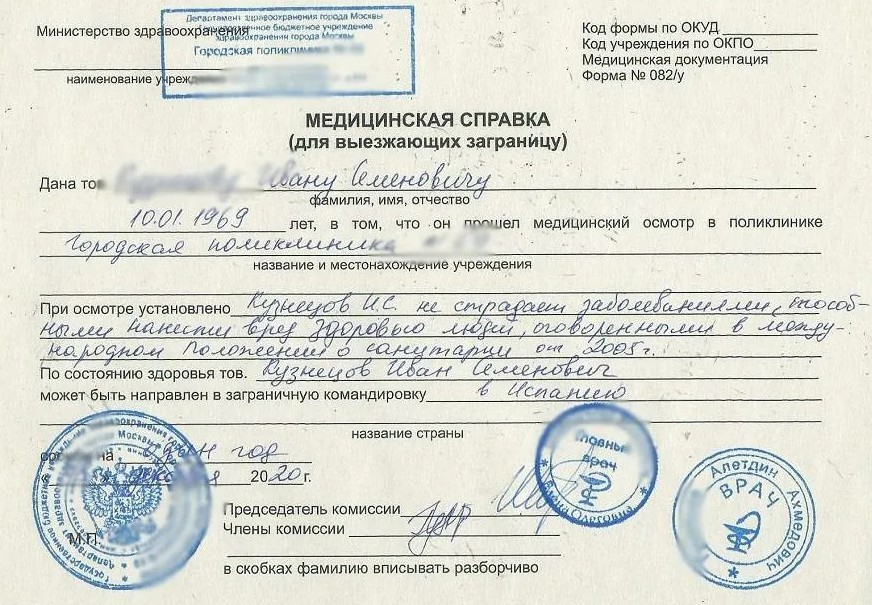 Департамент здравоохранения города Москвы
Государственное бюджетное учреждение
здравоохранения города Москвы
Городская поликлиника
Министерство здравоохранения
наименование учреждения
Код формы по ОКУД
Код учреждения по ОКПО
Медицинская документация
Форма № 082/у
МЕДИЦИНСКАЯ СПРАВКА
(для выезжающих заграницу)
Дана тов. Ивану Семеновичу
фамилия, имя, отчество
10.01.1969 лет, в том, что он прошел медицинский осмотр в поликлинике
Городская поликлиника
название и местонахождение учреждения
При осмотре установлено Кузнецов И.С. не страдает заболеваниями, способ-
ными нанести вред здоровью людей, оговоренными в между-
народном положении о санитарии от 2005 г.
По состоянию здоровья тов. Кузнецов Иван Семенович
может быть направлен в заграничную командировку в Испанию
название страны
сроком на один год
декабря 2020 г.
Председатель комиссии
Члены комиссии
М.П.
в скобках фамилию вписывать разборчиво
Главный
врач
Олеговна
Алетдин Ахмедович
ВРАЧ